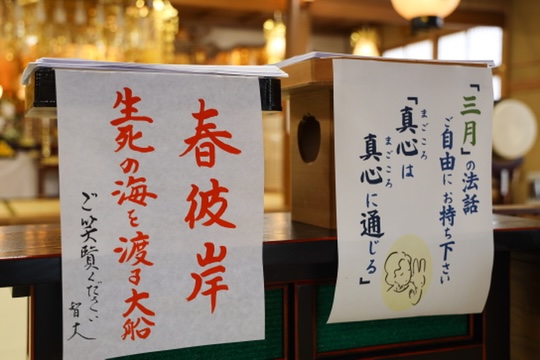 春彼岸
生死の海を渡る大船
ご笑賢ください
智丈
「三月」の法話
ご自由にお持ち下さい
「真心は
まごころ
真心に通じる」
まごころ